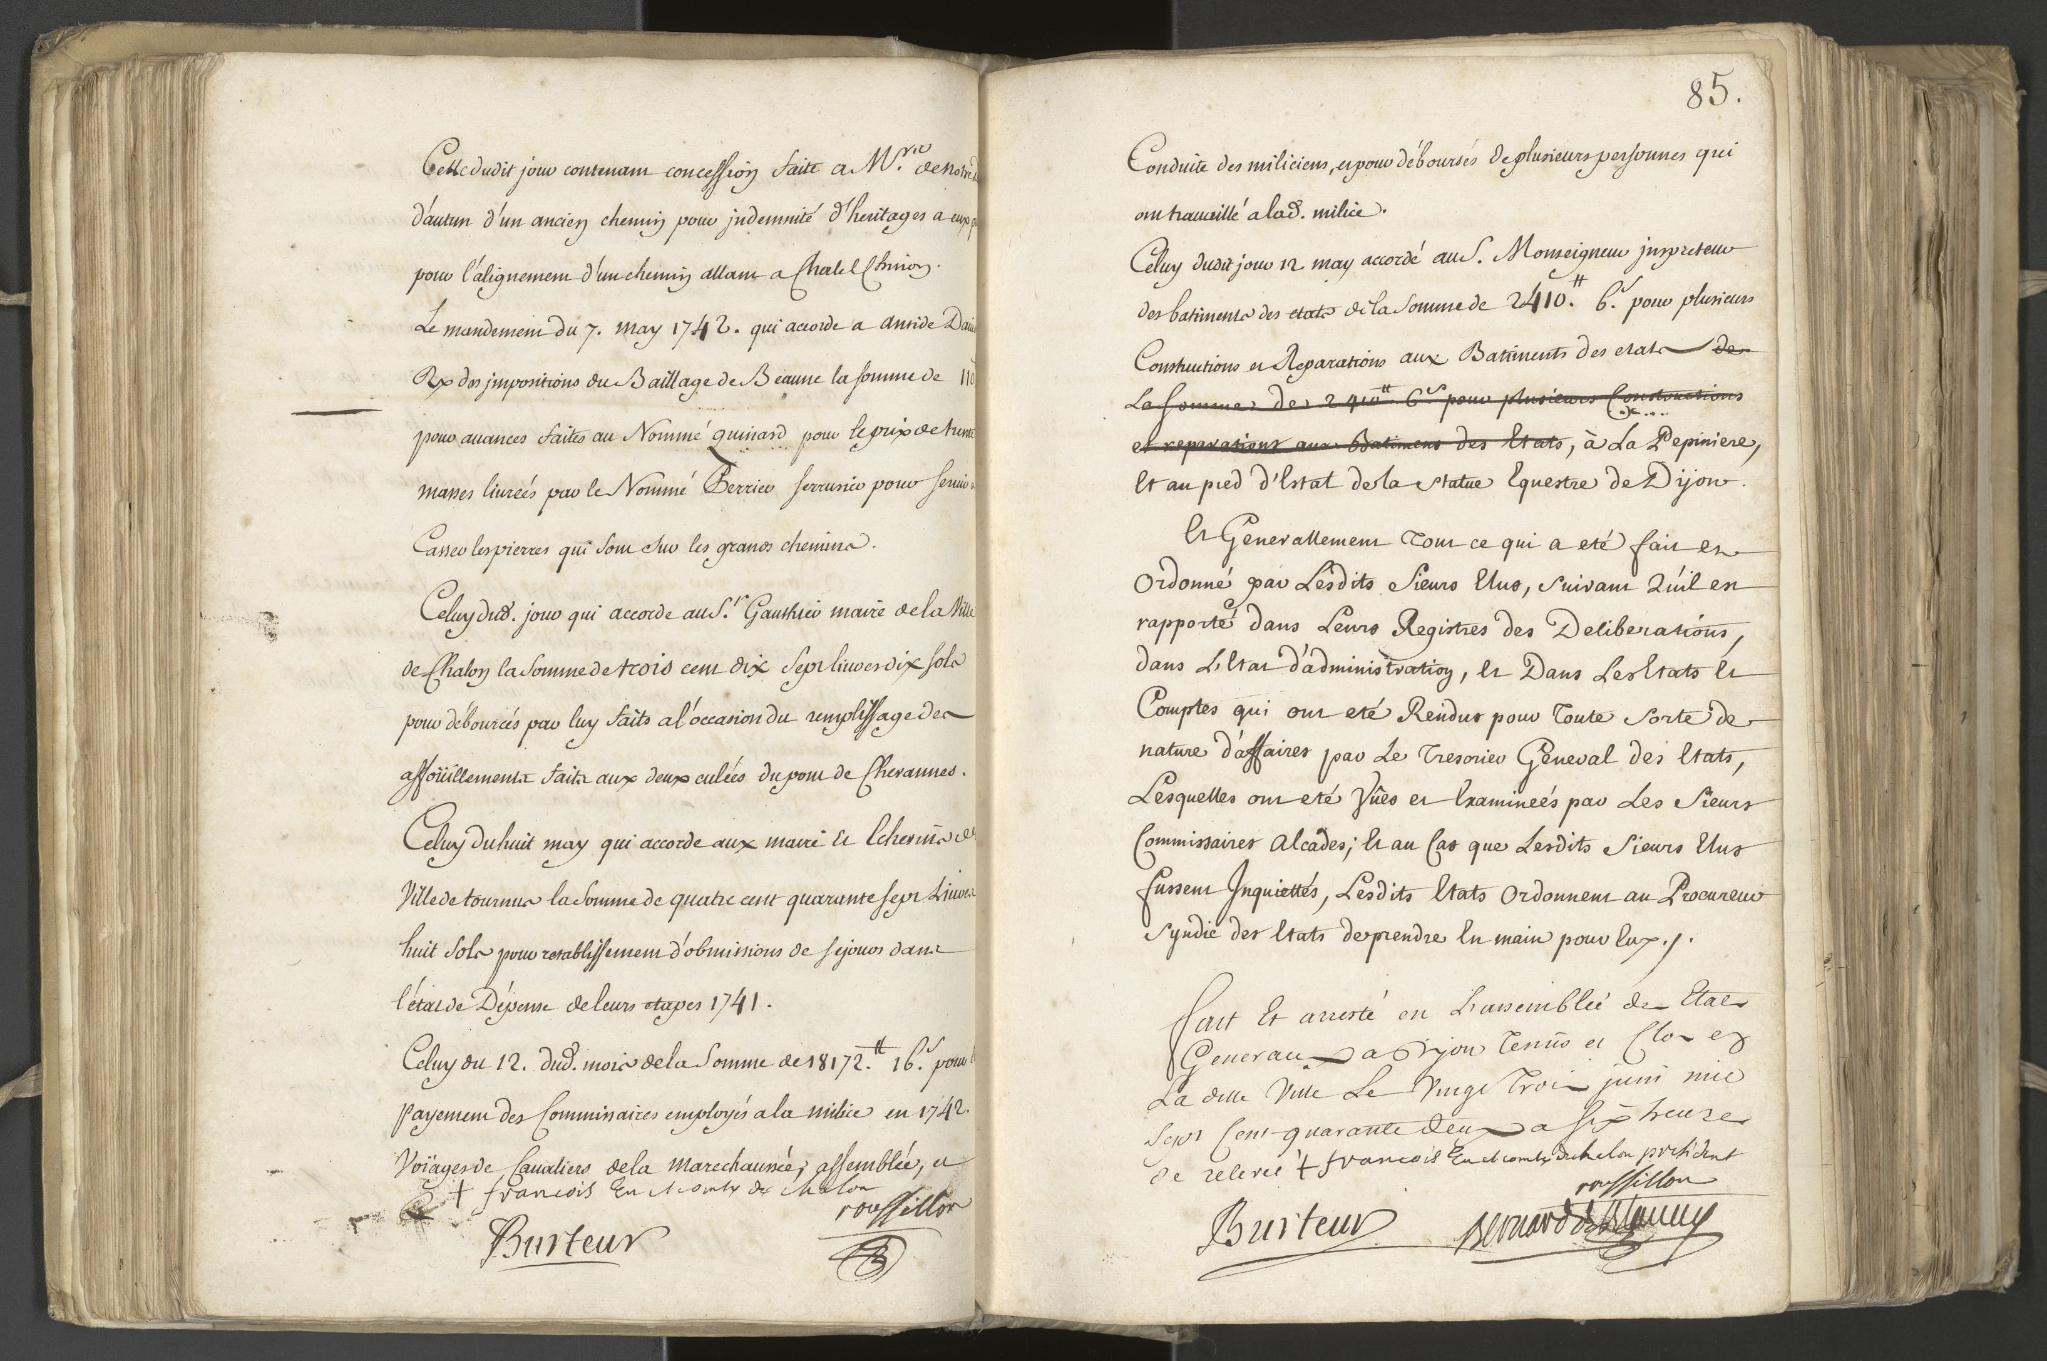 Celle dudit jour contenant concession faite a Mrs. de
d'autun d'un ancien chemin pour jndemnité d'heritages a eux
pour l'alignement d'un chemin allant a Chatel Chinon.
Le mandement du 7. may 1742. qui accorde a
des jmpositions du Baillage de Beaune la somme de 110
pour auances faites au Nommé quinard pour le prix de trente
masses liureés par le Nommé Perrier serrurier pour seruir
Casser les pierres qui sont sur les grands chemins.
Celuy dud. jour qui accorde au S.r Gauthier maire de la Ville
de Chalon la somme de trois cent dix sept liures dix sols
pour déboursés par luy faits a l'occasion du remplissage des
affoüillements faits aux deux culées du pont de Chevannes.
Celuy du huit may qui accorde aux maire Et Echevins de
Ville de tournus la somme de quatre cent quarante sept Liures
huit sols pour retablissement d'obmissions de sejours dans
l'état de Dépense de leurs etapes 1741.
Celuy du 12. dud. mois de la Somme de 18172.tt 16.s pour
payement des Commissaires employés a la milice en 1742.
Voïages de Caualiers de la marechaussée, assemblée, et
+ françois Eu et comte de chalon
roussillon
Burteur
85.
Conduite des miliciens, et pour déboursés de plusieurs personnes qui
ont trauaillé a lad. milice.
Celuy dudit jour 12 may accordé au S. Monseigneur jnspecteur
des batiments des etats de la somme de 2410.tt 6.s pour plusieurs
Constructions et Reparations aux Batiments des etats de
La somme de 2410tt 6s pour plusieurs Constructions
et reparations aux Batiments des Etats, à La Pepiniere,
Et au pied d'Estat de la statue Equestre de Dijon.
Et Generallement Tout ce qui a eté fait et
Ordonné par Lesdits Sieurs Elus, suivant Qu'il est
rapporté dans Leurs Registres des Deliberations,
dans L'Etat d'administration, Et Dans Les Etats Et
Comptes qui ont eté Rendus pour Toute sorte de
nature d'affaires par Le Tresorier General des Etats,
Lesquelles ont eté Vûes et Examineés par Les Sieurs
Commissaires Alcades; Et au Cas que Lesdits Sieurs Elus
fussent Inquiettés, Lesdits Etats Ordonnent au Procureur
syndic des Etats de prendre En main pour Eux./.
fait Et arresté en L'assemblée des Etats
Generaux a Dijon Tenus et Clos en
La ditte Ville Le Vingt Trois juin mil
sept Cent quarante deux a six heures
de relevée + françois Eu et comte de chalon président
roussillon
Burteur
Bernard de Blancey